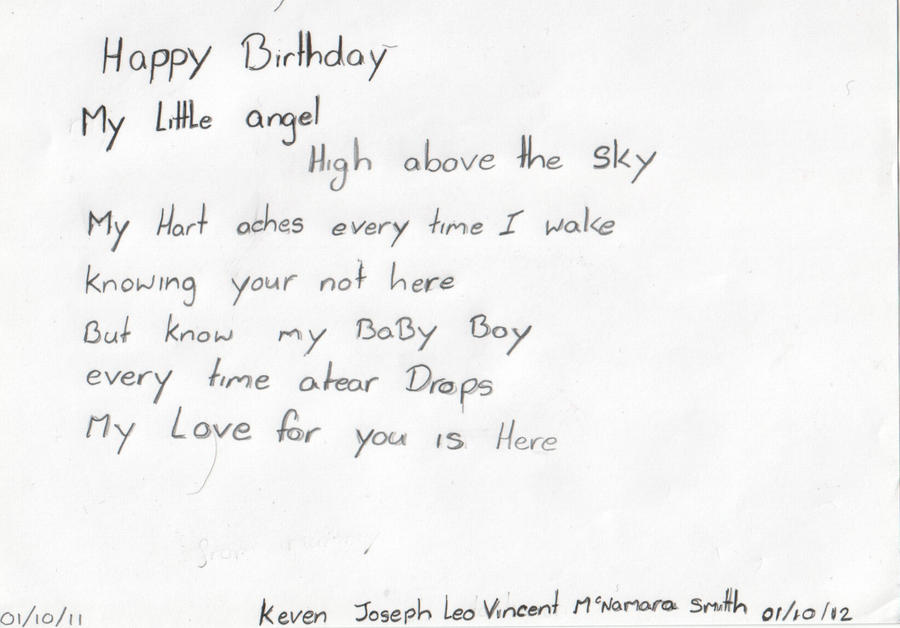 Happy Birthday
My Little angel
High above the sky
My Hart aches every time I wake
knowing your not here
But know my BaBy Boy
every time atear Drops
My Love for you is Here
from mummy
01/10/11 Keven Joseph Leo Vincent McNamara Smith 01/10/12